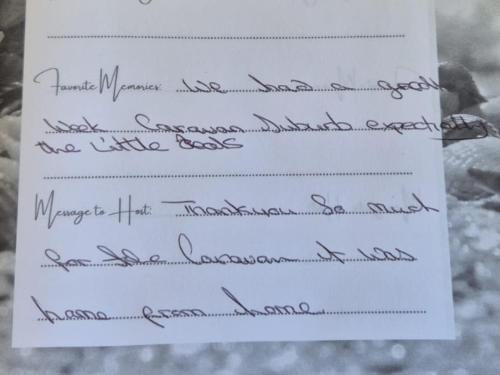 Favorite Memories: We had a good
Week Caravan Suburb expectially
the Little Seals
Message to Host: Thankyou So much
for the Caravan it was
home from home